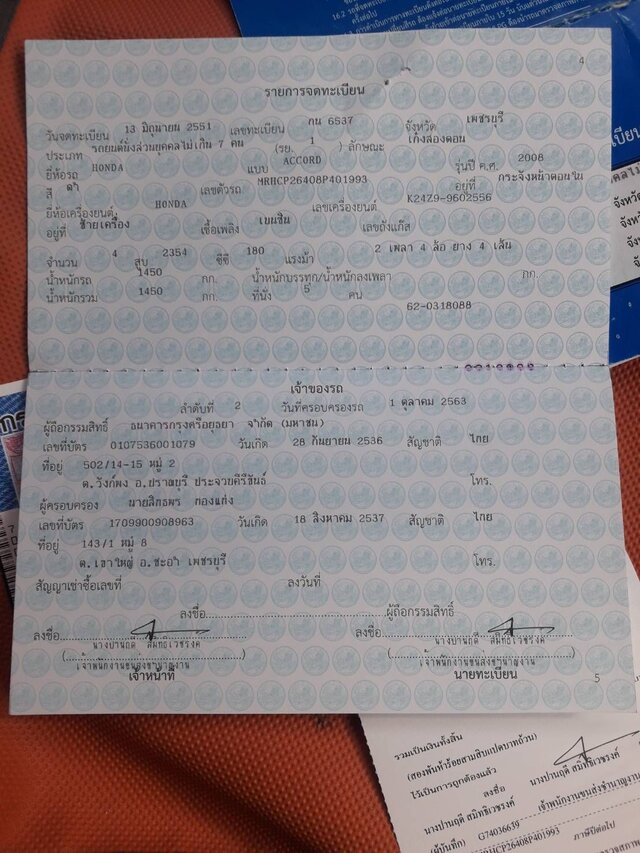 4
รายการจดทะเบียน
วันจดทะเบียน 13 มิถุนายน 2551 เลขทะเบียน กน 6537 จังหวัด เพชรบุรี
ประเภท รถยนต์นั่งส่วนบุคคลไม่เกิน 7 คน (รย. 1 ) ลักษณะ เก๋งสองตอน
ยี่ห้อรถ HONDA แบบ ACCORD รุ่นปี ค.ศ. 2008
สี ดำ เลขตัวรถ MRHCP26408P401993 อยู่ที่ กระจังหน้าตอนใน
ยี่ห้อเครื่องยนต์ HONDA เลขเครื่องยนต์ K24Z9-9602556
อยู่ที่ ซ้ายเครื่อง เชื้อเพลิง เบนซิน เลขถังแก๊ส
จำนวน 4 สูบ 2354 ซีซี 180 แรงม้า 2 เพลา 4 ล้อ ยาง 4 เส้น
น้ำหนักรถ 1450 กก. น้ำหนักบรรทุก/น้ำหนักลงเพลา กก.
น้ำหนักรวม 1450 กก. ที่นั่ง 5 คน
62-0318088
เจ้าของรถ
ลำดับที่ 2 วันที่ครอบครองรถ 1 ตุลาคม 2563
ผู้ถือกรรมสิทธิ์ ธนาคารกรุงศรีอยุธยา จำกัด (มหาชน)
เลขที่บัตร 0107536001079 วันเกิด 28 กันยายน 2536 สัญชาติ ไทย
ที่อยู่ 502/14-15 หมู่ 2
ต.วังก์พง อ.ปราณบุรี ประจวบคีรีขันธ์ โทร.
ผู้ครอบครอง นายสิทธพร ทองแก่ง
เลขที่บัตร 1709900908963 วันเกิด 18 สิงหาคม 2537 สัญชาติ ไทย
ที่อยู่ 143/1 หมู่ 8
ต.เขาใหญ่ อ.ชะอำ เพชรบุรี โทร.
สัญญาเช่าซื้อเลขที่ ลงวันที่
ลงชื่อ ผู้ถือกรรมสิทธิ์
ลงชื่อ ลงชื่อ
นางปานฤดี สมิทธิเวชรงค์ นางปานฤดี สมิทธิเวชรงค์
( เจ้าพนักงานขนส่งชำนาญงาน ) ( เจ้าพนักงานขนส่งชำนาญงาน )
เจ้าหน้าที่ นายทะเบียน
5
รวมเป็นเงินทั้งสิ้น
(สองพันห้าร้อยสามสิบแปดบาทถ้วน)
ไว้เป็นการถูกต้องแล้ว
ลงชื่อ นางปานฤดี สมิทธิเวชรงค์
นางปานฤดี สมิทธิเวชรงค์ เจ้าพนักงานขนส่งชำนาญงาน
(ผู้บันทึก) G74036659 ภาษีปีต่อไป
MRHCP26408P401993